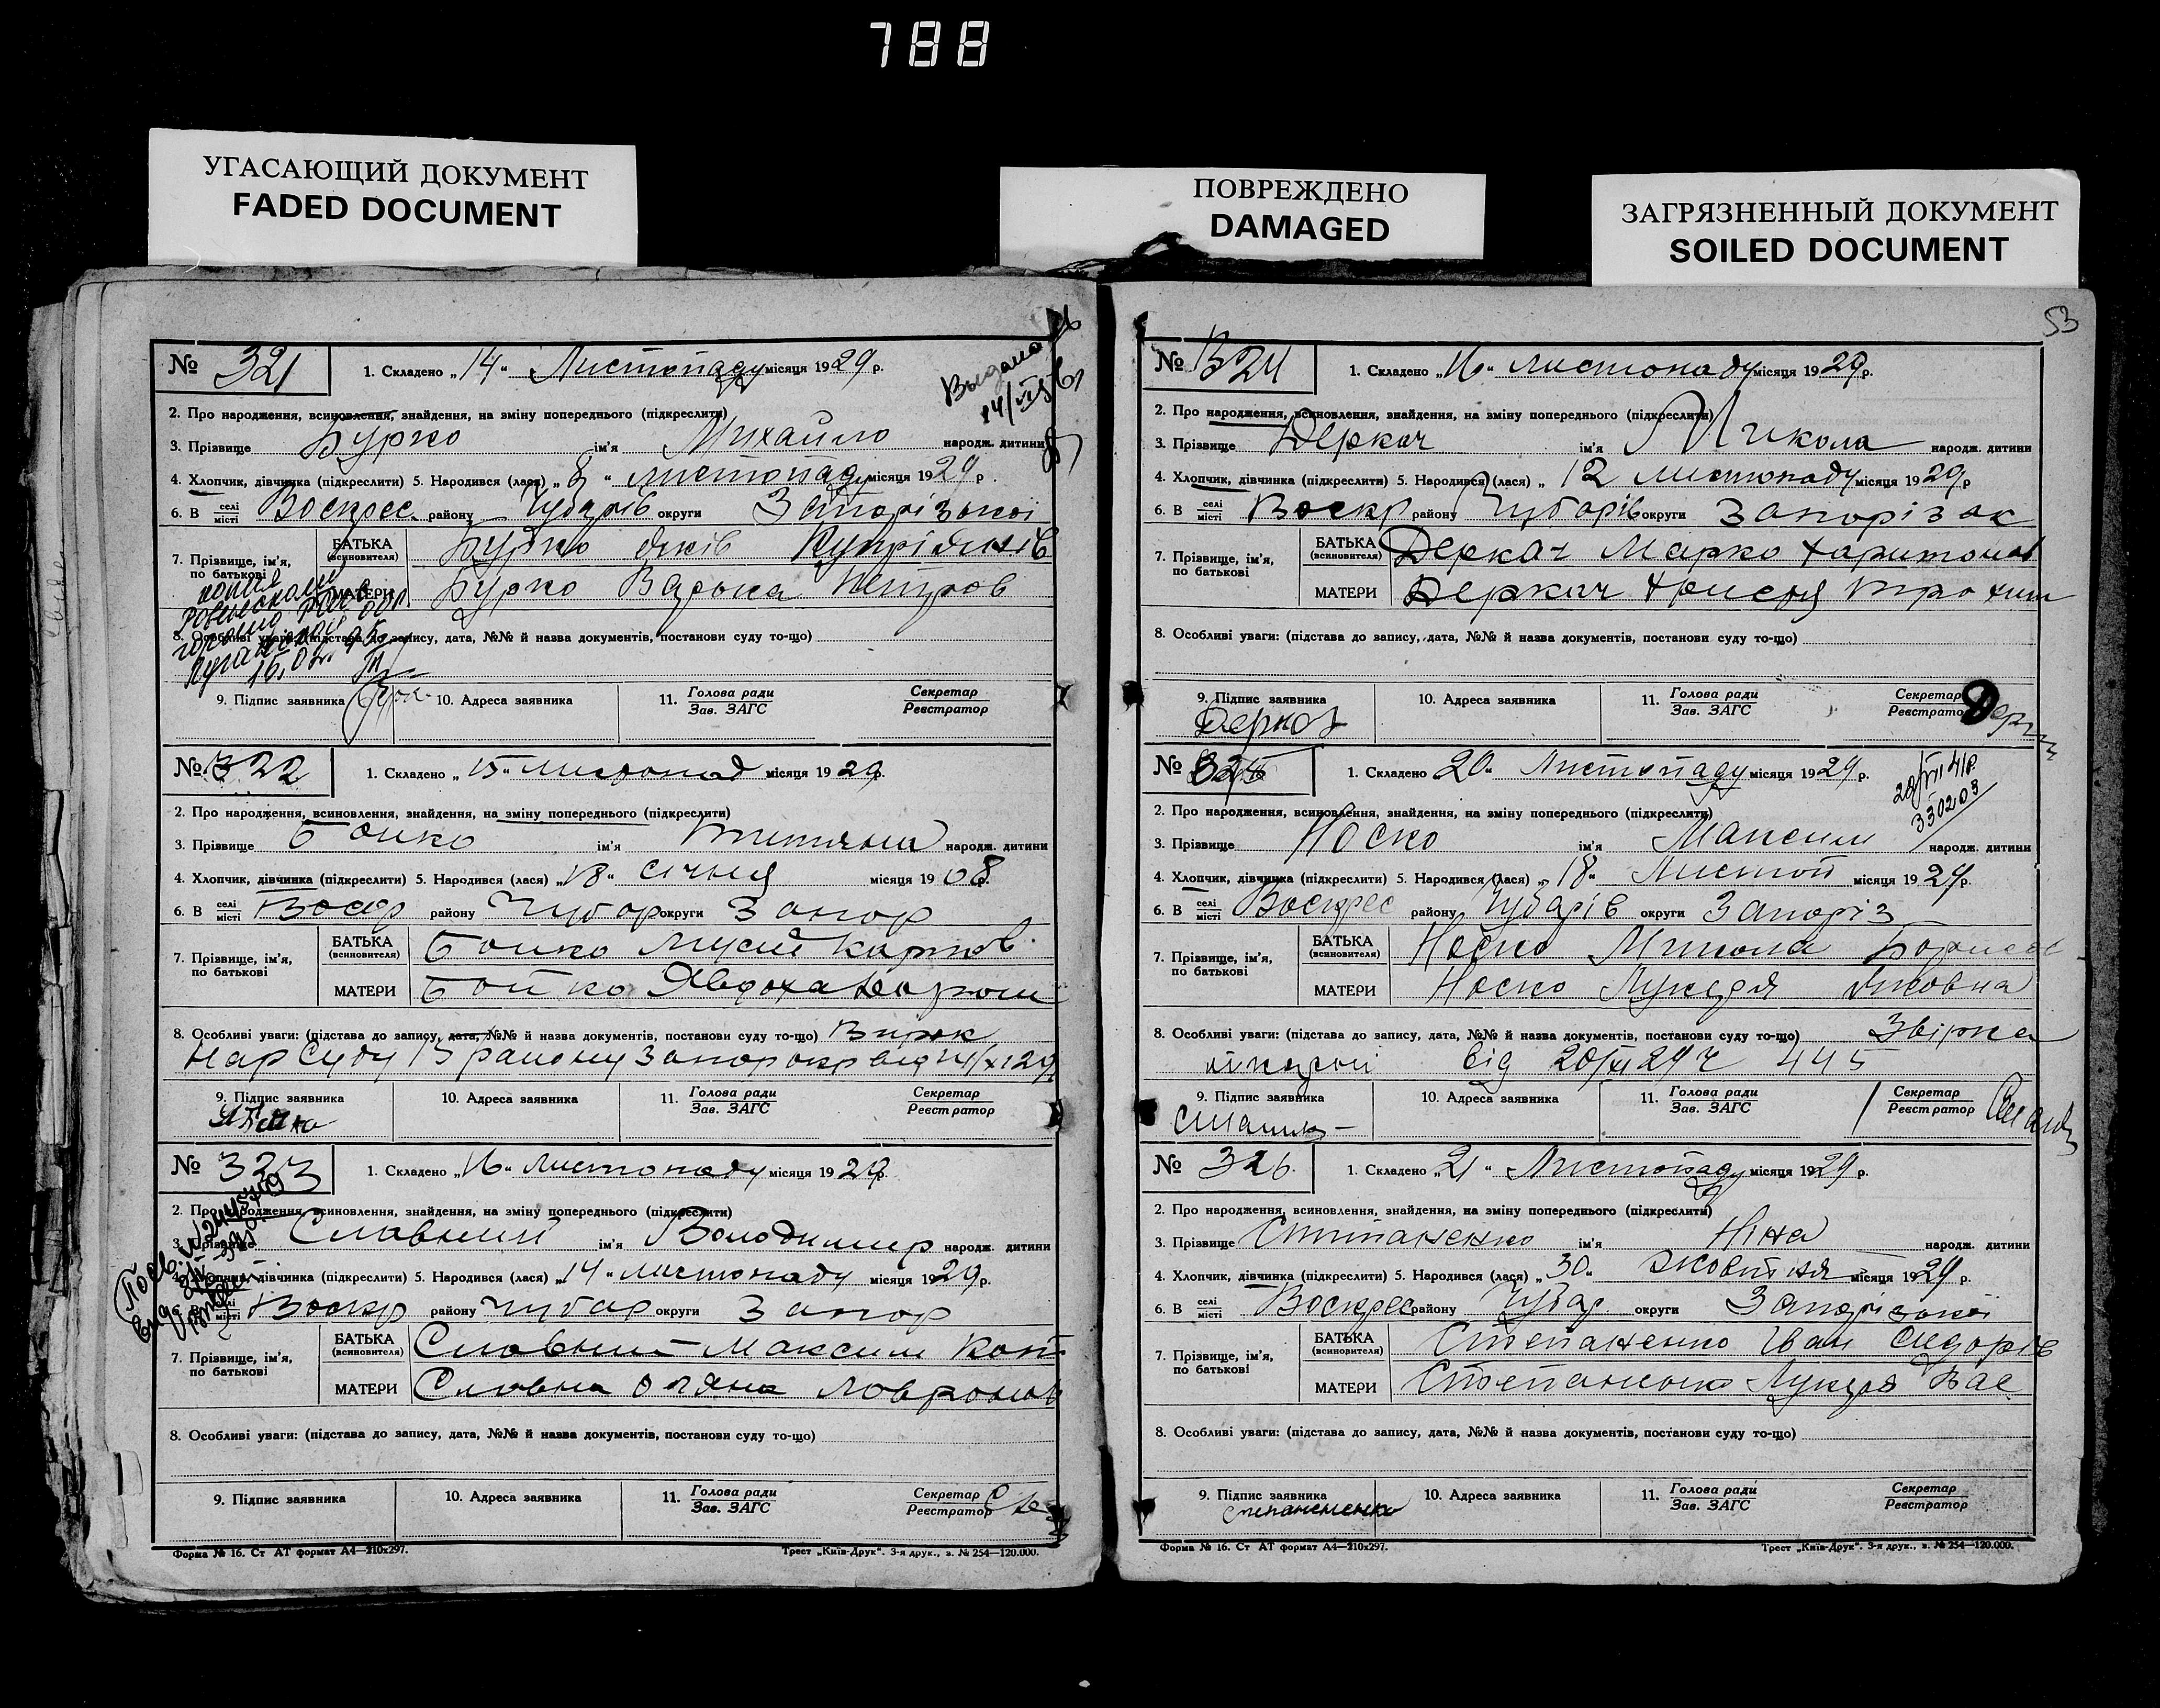 788
УГАСАЮЩИЙ ДОКУМЕНТ
FADED DOCUMENT
ПОВРЕЖДЕНО
DAMAGED
ЗАГРЯЗНЕННЫЙ ДОКУМЕНТ
SOILED DOCUMENT
№ 321 1. Складено „14" Листопаду місяця 1929 р.
2. Про народження, всиновлення, знайдення, на зміну попереднього (підкреслити)
3. Прізвище Бурко ім'я Михайло народж. дитини
4. Хлопчик, дівчинка (підкреслити) 5. Народився (лася) „8" листопаду місяця 1929 р.
6. В селі місті Воскрес. району Чубарів округи Запорізької
7. Прізвище, ім'я, по батькові
БАТЬКА (всиновителя) Бурко Яків Купріянів
МАТЕРИ Бурко Варька Петров
8. Особливі уваги: (підстава до запису, дата, №№ й назва документів, постанови суду то-що)
9. Підпис заявника 10. Адреса заявника 11. Голова ради Зав. ЗАГС Секретар Реєстратор
№ 322 1. Складено „15" листопад місяця 1929р.
2. Про народження, всиновлення, знайдення, на зміну попереднього (підкреслити)
3. Прізвище Бойко ім'я Титяна народж. дитини
4. Хлопчик, дівчинка (підкреслити) 5. Народився (лася) „18" січня місяця 1908р.
6. В селі місті Воскр району Чубар округи Запор
7. Прізвище, ім'я, по батькові
БАТЬКА (всиновителя) Бойко Мусій Карпов
МАТЕРИ Бойко Явдоха
8. Особливі уваги: (підстава до запису, дата, №№ й назва документів, постанови суду то-що) Вирок
Нар Суду 13 району Запор окр від
9. Підпис заявника 10. Адреса заявника 11. Голова ради Зав. ЗАГС Секретар Реєстратор
№ 323 1. Складено „16" листопаду місяця 1929р.
2. Про народження, всиновлення, знайдення, на зміну попереднього (підкреслити)
3. Прізвище Славний ім'я Володимир народж. дитини
4. Хлопчик, дівчинка (підкреслити) 5. Народився (лася) „14" листопаду місяця 1929р.
6. В селі місті Воскр району Чубар округи Запор
7. Прізвище, ім'я, по батькові
БАТЬКА (всиновителя) Славний Максим
МАТЕРИ Славна Ол'яна Лавронов
8. Особливі уваги: (підстава до запису, дата, №№ й назва документів, постанови суду то-що)
9. Підпис заявника 10. Адреса заявника 11. Голова ради Зав. ЗАГС Секретар Реєстратор
Форма № 16. Ст АТ формат А4—210x297. Трест „Київ-Друк". 3-я друк., з. № 254—120.000.
53
№ 324 1. Складено „16" листопаду місяця 1929р.
2. Про народження, всиновлення, знайдення, на зміну попереднього (підкреслити)
3. Прізвище Деркач ім'я Микола народж. дитини
4. Хлопчик, дівчинка (підкреслити) 5. Народився (лася) „12 листопаду місяця 1929р
6. В селі місті Воскр району Чубарів округи Запорізьк
7. Прізвище, ім'я, по батькові
БАТЬКА (всиновителя) Деркач Марко Харитонов
МАТЕРИ Деркач
8. Особливі уваги: (підстава до запису, дата, №№ й назва документів, постанови суду то-що)
9. Підпис заявника Деркач 10. Адреса заявника 11. Голова ради Зав. ЗАГС Секретар Реєстратор
№ 325 1. Складено 20" Листопаду місяця 1929р.
20/VII 41р.
330203
2. Про народження, всиновлення, знайдення, на зміну попереднього (підкреслити)
3. Прізвище Носко ім'я Максим народж. дитини
4. Хлопчик, дівчинка (підкреслити) 5. Народився (лася) „18" Листоп місяця 1929р.
6. В селі місті Воскрес району Чубарів округи Запоріз
7. Прізвище, ім'я, по батькові
БАТЬКА (всиновителя) Носко Микола Борисов
МАТЕРИ Носко Лукеря Яковна
8. Особливі уваги: (підстава до запису, дата, №№ й назва документів, постанови суду то-що)
від 20/XI 29 445
9. Підпис заявника 10. Адреса заявника 11. Голова ради Зав. ЗАГС Секретар Реєстратор
№ 326. 1. Складено „21" Листопаду місяця 1929р.
2. Про народження, всиновлення, знайдення, на зміну попереднього (підкреслити)
3. Прізвище Степаненко ім'я Ніна народж. дитини
4. Хлопчик, дівчинка (підкреслити) 5. Народився (лася) „30" жовтня місяця 1929 р.
6. В селі місті Воскрес району Чубар округи Запорізької
7. Прізвище, ім'я, по батькові
БАТЬКА (всиновителя) Степаненко Іван Сидорів
МАТЕРИ Степаненко Лукеря Вас
8. Особливі уваги: (підстава до запису, дата, №№ й назва документів, постанови суду то-що)
9. Підпис заявника 10. Адреса заявника 11. Голова ради Зав. ЗАГС Секретар Реєстратор
Форма № 16. Ст АТ формат А4—210x297. Трест „Київ-Друк". 3-я друк., з. № 254—120.000.